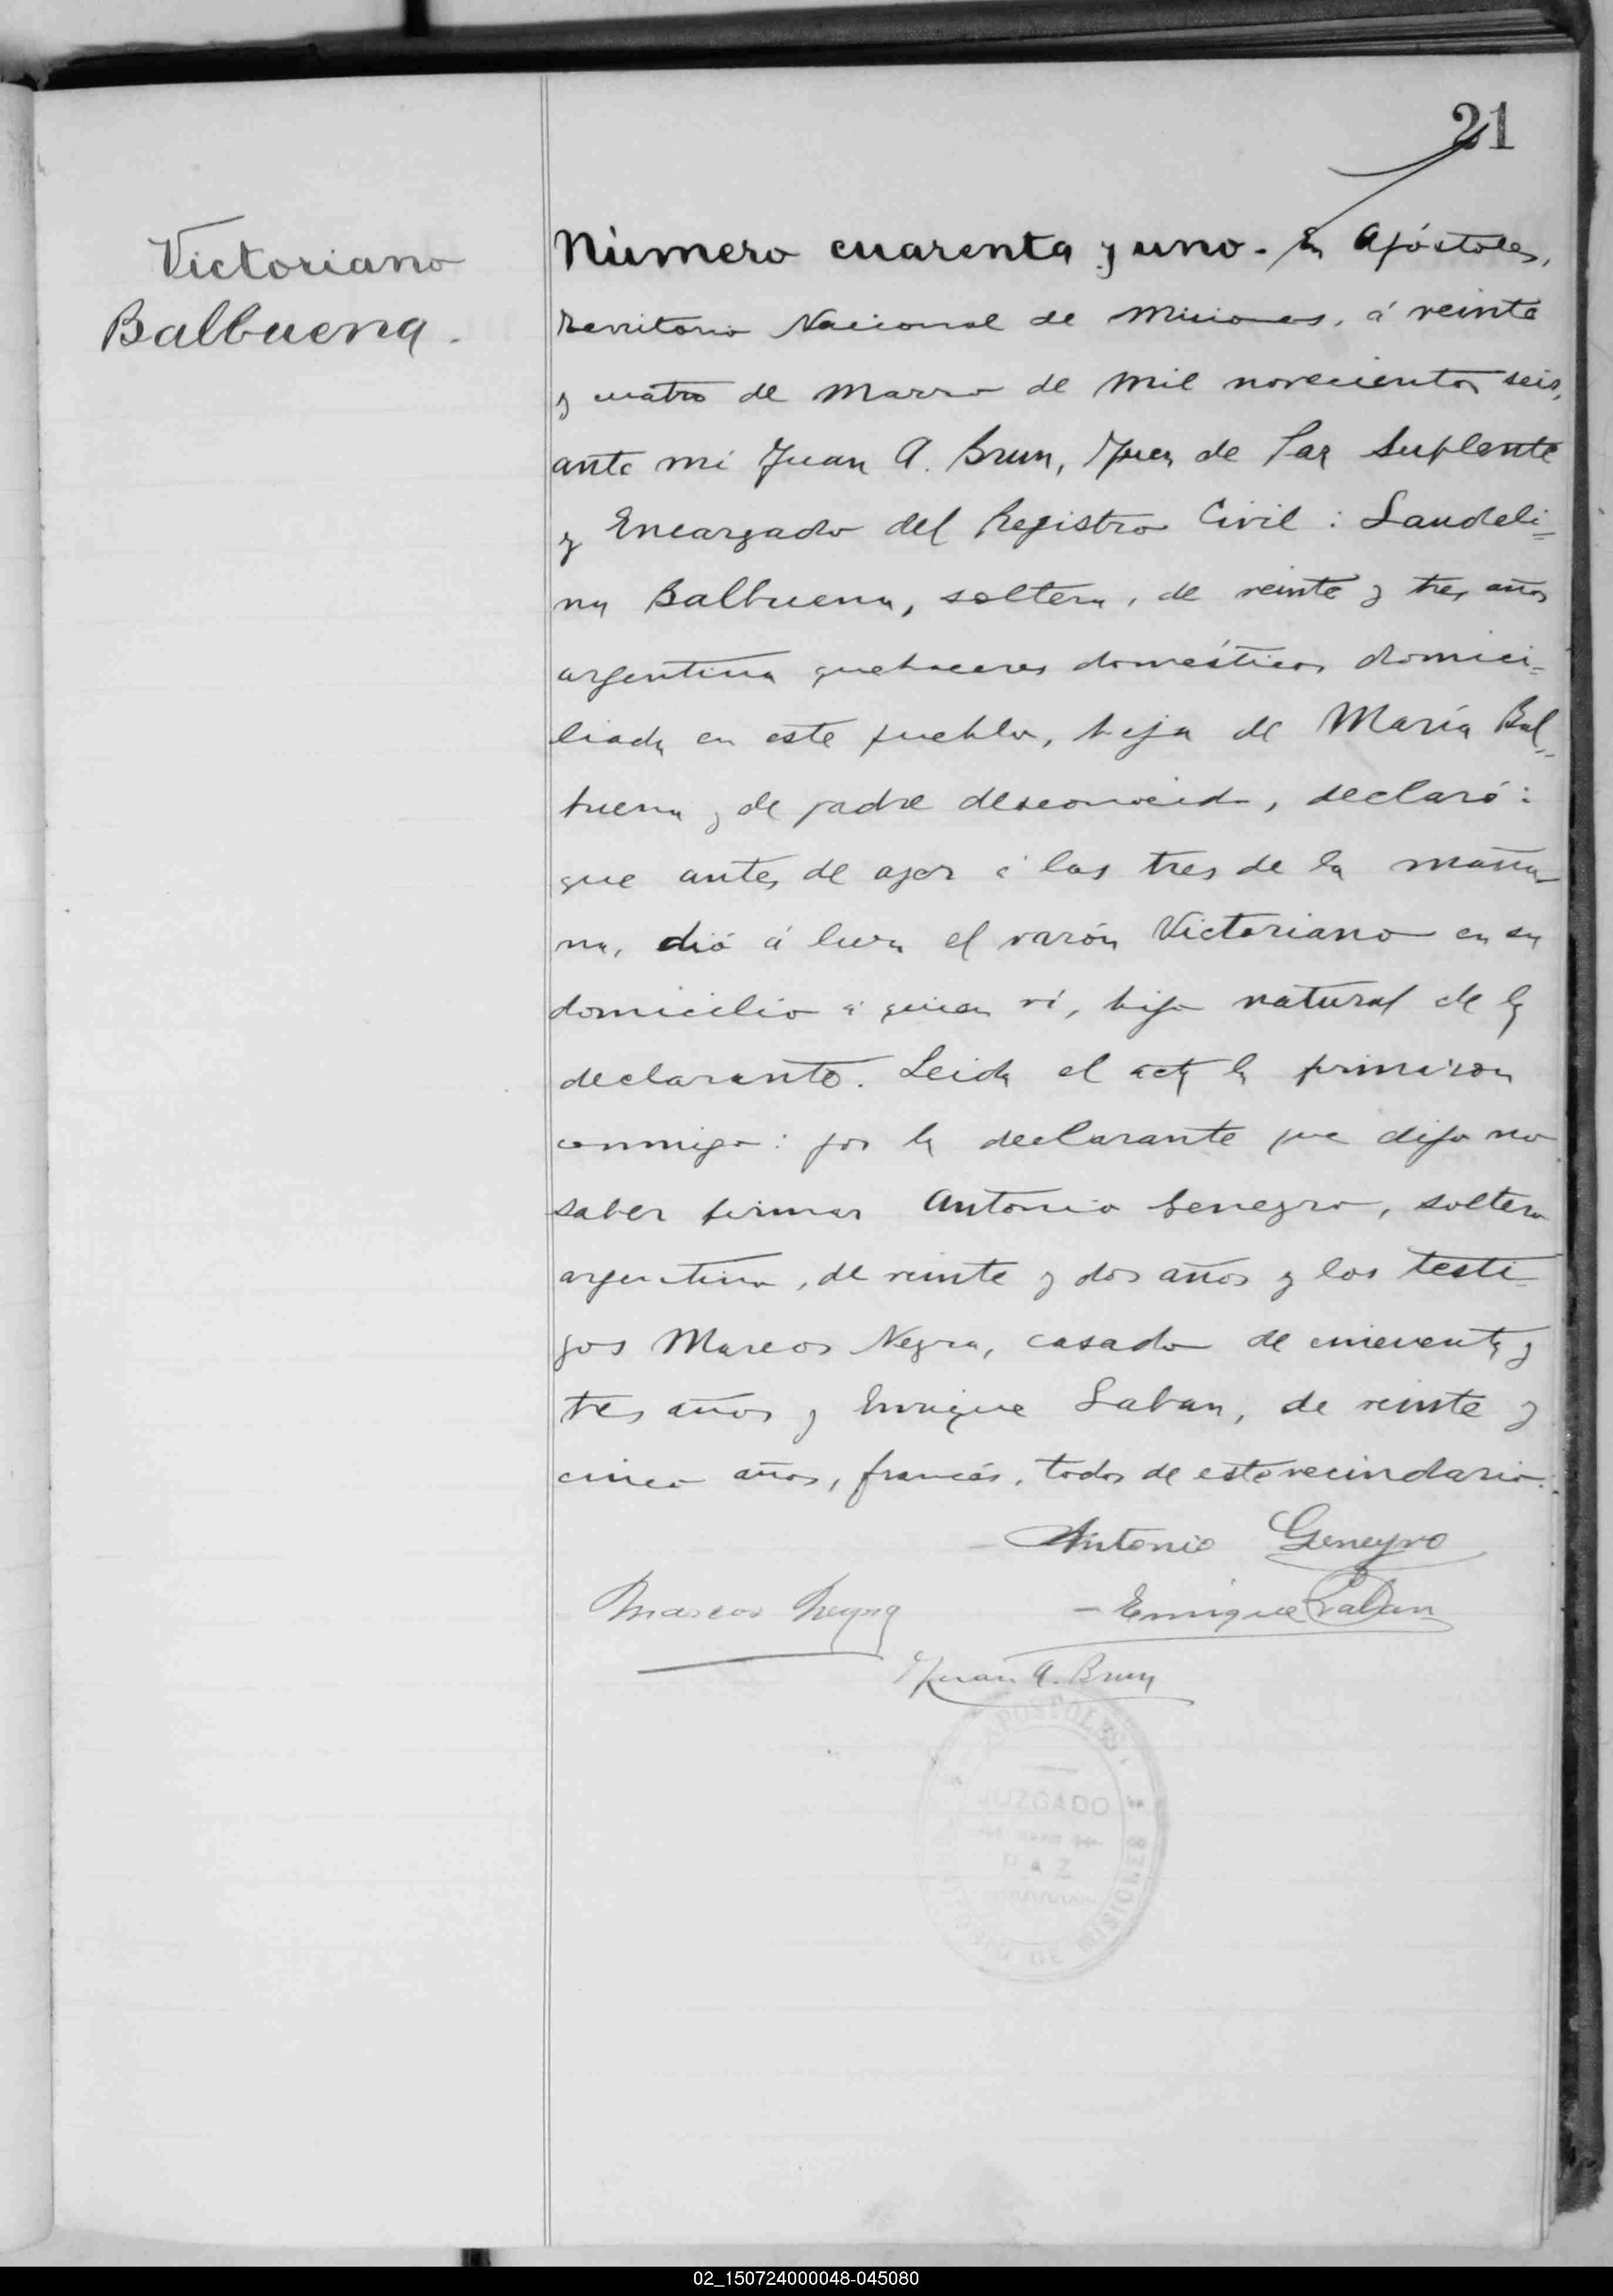 21
Victoriano
Balbuena.
Número cuarenta y uno. En Apóstoles,
Territorio Nacional de Misiones, á veinte
y cuatro de Marzo de mil novecientos seis,
ante mi Juan A. Brun, Juez de Paz Suplente
y Encargado del Registro Civil: Laudeli=
na Balbuena, soltera, de veinte y tres años
argentina quehaceres domésticos domici=
liada en este pueblo, hija de María Bal=
buena y de padre desconocido, declaró:
que antes de ayer á las tres de la maña
na, dió á luz el varón Victoriano en su
domicilio á quien ví, hijo natural de la
declarante. Leida el acta la firmaron
conmigo: por la declarante que dijo no
saber firmar Antonio Geneyro, soltero
argentino, de veinte y dos años y los testi
gos Marcos Neyra, casado de cincuenta y
tres años y Enrique Laban, de veinte y
cinco años, francés, todos de este vecindario.
Antonio Geneyro
Marcos Neyra
Enrique Laban
Juan A. Brun
APOSTOLES
JUZGADO
PAZ
DE MISIONES
02_150724000048-045080